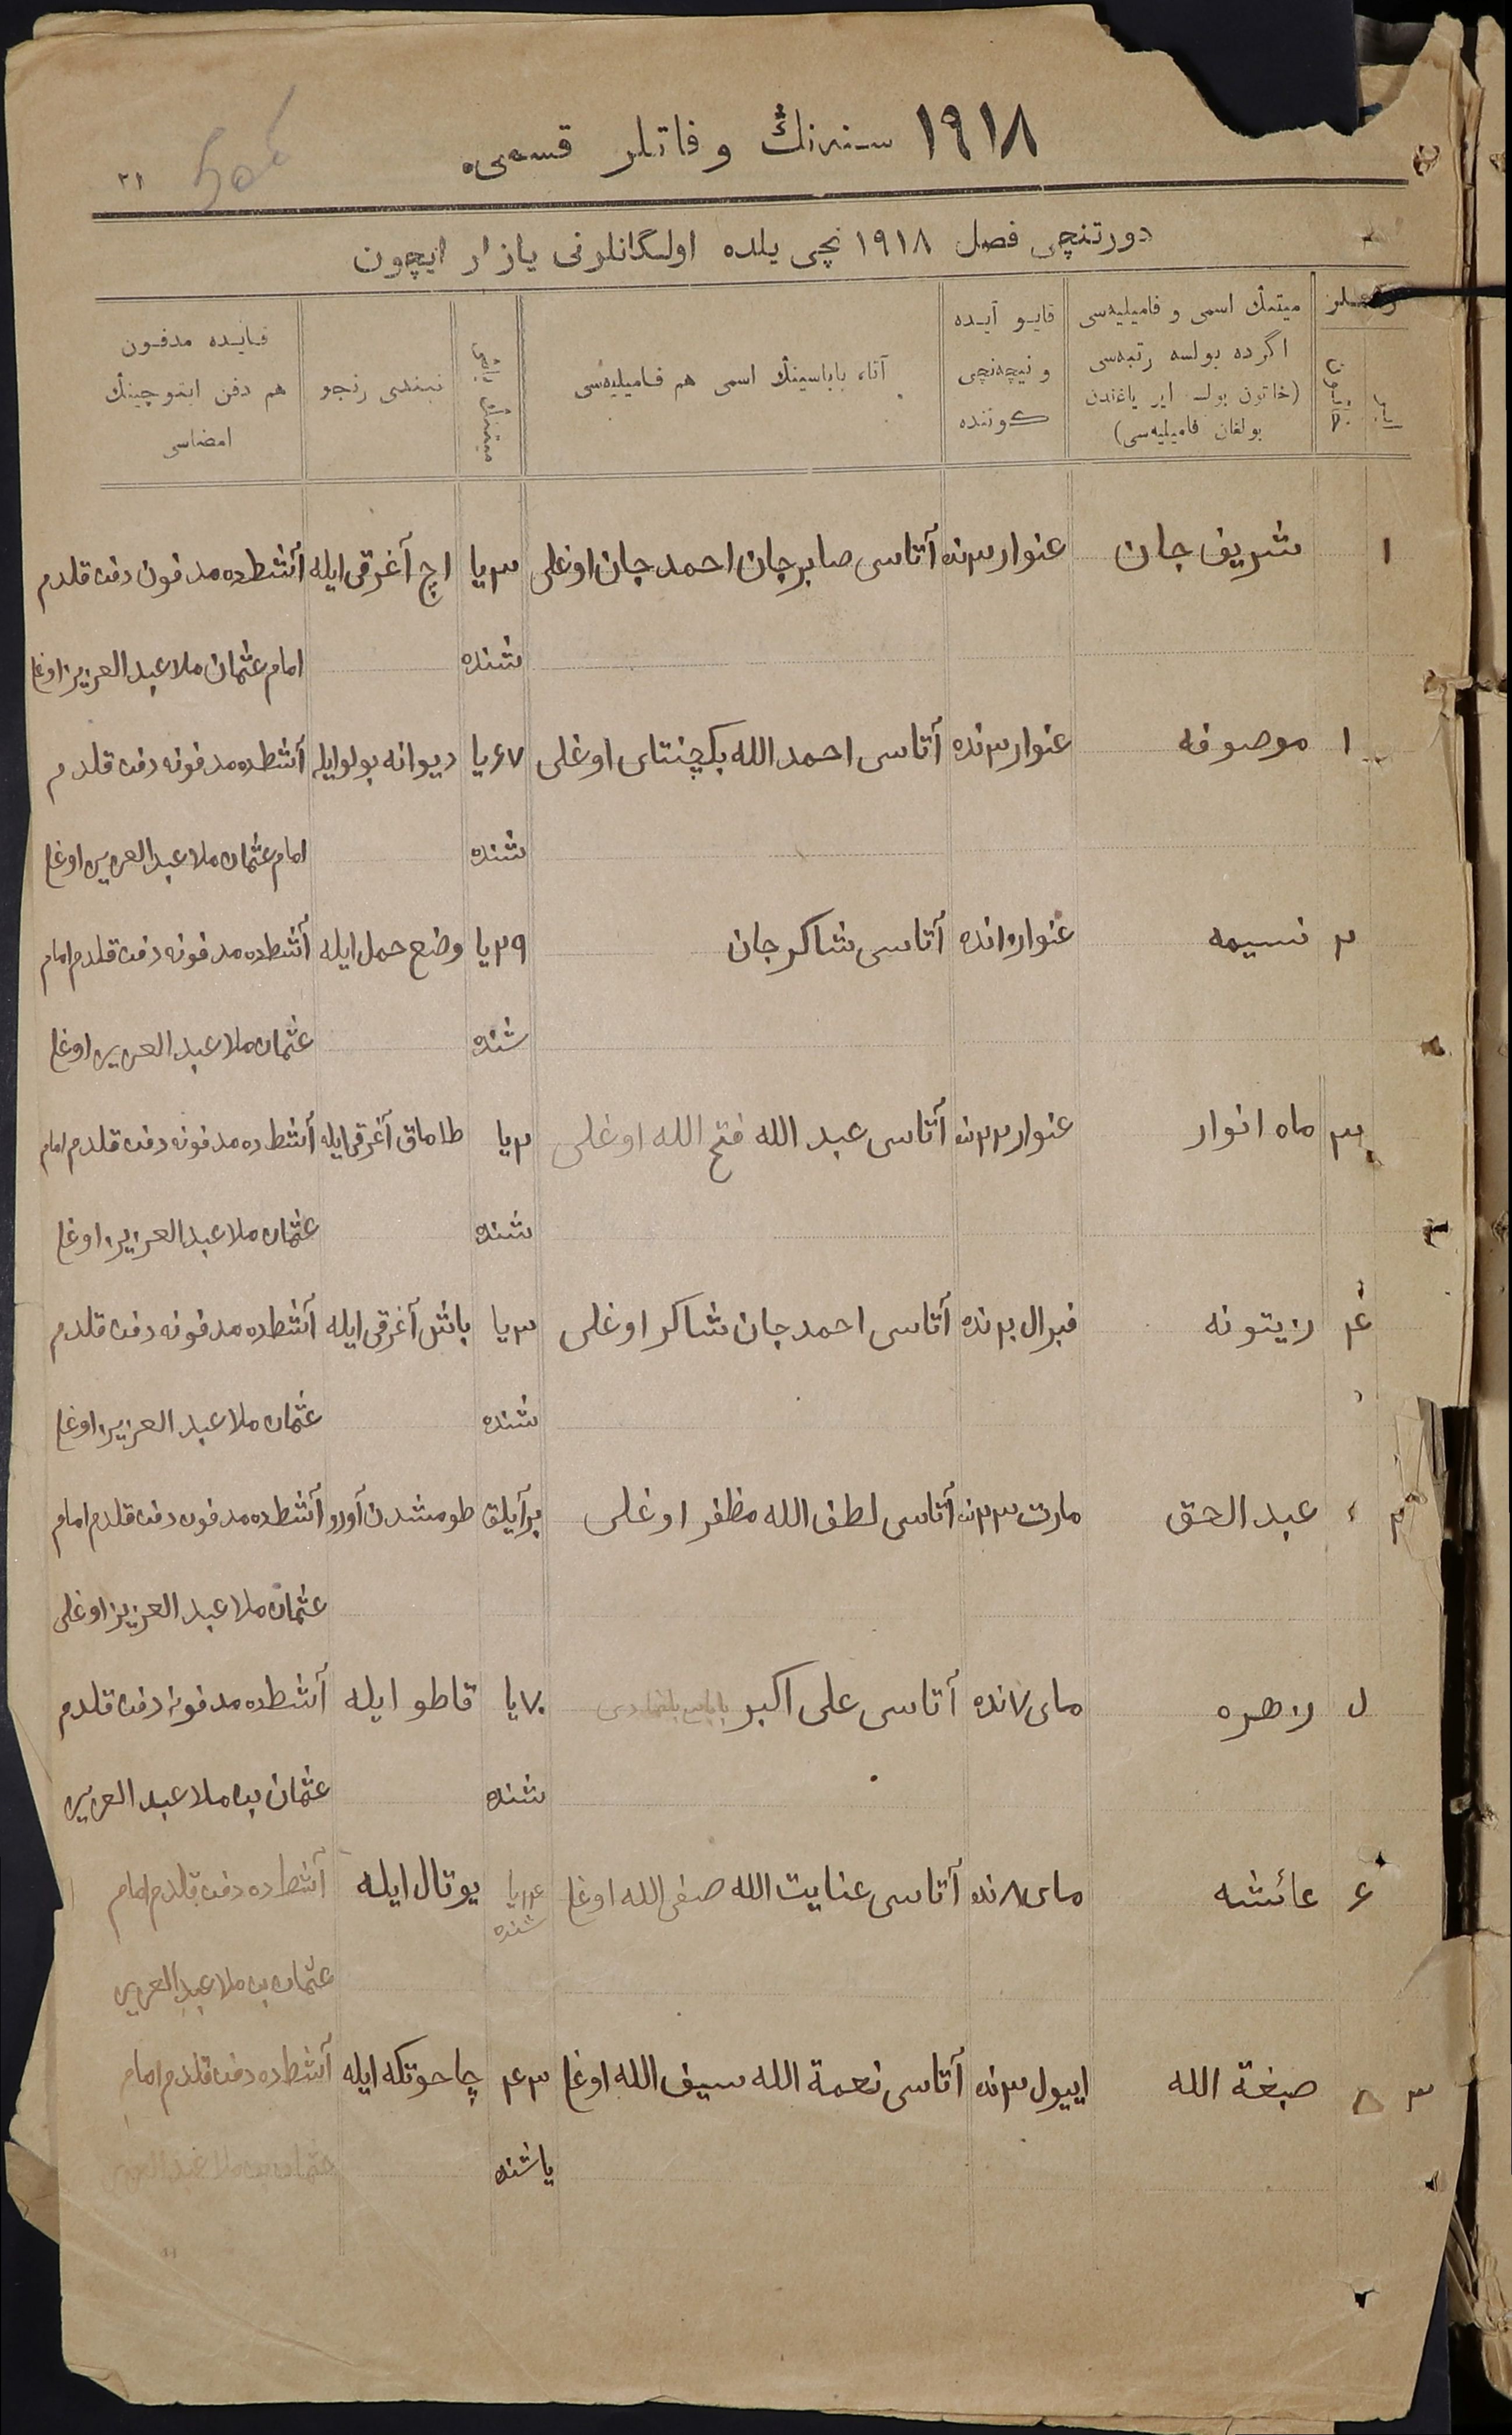 ١٩١٨ سنه‌نڭ وفاتلر قسمی
٢١
دورتنچی فصل ١٩١٨ نچی یلده اولگانلرنی یازار ایچون
میتنڭ اسمی و فامیلیه‌سی
اگرده بولسه رتبه‌سی
(خاتون بولسه ایر یاغندن
بولغان فامیلیه‌سی)
قایو آیده
و نیچه‌نچی
كونده
آتا، باباسینڭ اسمی هم فامیلیه‌سی
نیندی رنجو
قایده مدفون
هم دفن ایتوچینڭ
امضاسی
١ شریف جان غنوار ٣ نده آتاسی صابرجان احمدجان اوغلی ٣ یا اچ آغرقی ایله آشطده مدفون دفن قلدم
شنده امام عثمان ملا عبد العزیز اوغلی
١ موصوفه غنوار ٣ نده آتاسی احمد الله بکچنتای اوغلی ٦٧ یا دیوانه بولو ایله آشطده مدفونه دفن قلدم
شنده امام عثمان ملا عبد العزیز اوغلی
٢ نسیمه غنوار ١٥ نده آتاسی شاکر جان ٢٩ یا وضع حمل ایله آشطده مدفونه دفن قلدم امام
شنده عثمان ملا عبد العزیز اوغلی
٣ ماه انوار غنوار ٢٣ نده آتاسی عبد الله فتح الله اوغلی ٢ یا طاماق آغرقی ایله آشطده مدفونه دفن قلدم امام
شنده عثمان ملا عبد العزیز اوغلی
٤ زیتونه فبرال ٢ نده آتاسی احمد جان شاکر اوغلی ٣ یا باش آغرقی ایله آشطده مدفونه دفن قلدم
شنده عثمان ملا عبد العزیز اوغلی
٢ عبد الحق مارت ٢٣ نده آتاسی لطف الله مظفر اوغلی بر آیلق طومشدن آورو آشطده مدفون دفن قلدم امام
عثمان ملا عبد العزیز اوغلی
زهره مای ٧ نده آتاسی علی اکبر ٧٠ یا قاطو ایله آشطده مدفونه دفن قلدم
شنده عثمان بن ملا عبد العزیز
٦ عائشه مای ٨ نده آتاسی عنایت الله صفی الله اوغلی یا یوتال ایله آشطده دفن قلدم امام
شنده
عثمان بن ملا عبد العزیز
٣ صبغة الله اییول ٣ نده آتاسی نعمة الله سیف الله اوغلی ٤٣ چاحوتکه ایله آشطده دفن قلدم امام
یاشنده عثمان بن ملا عبد العزیز